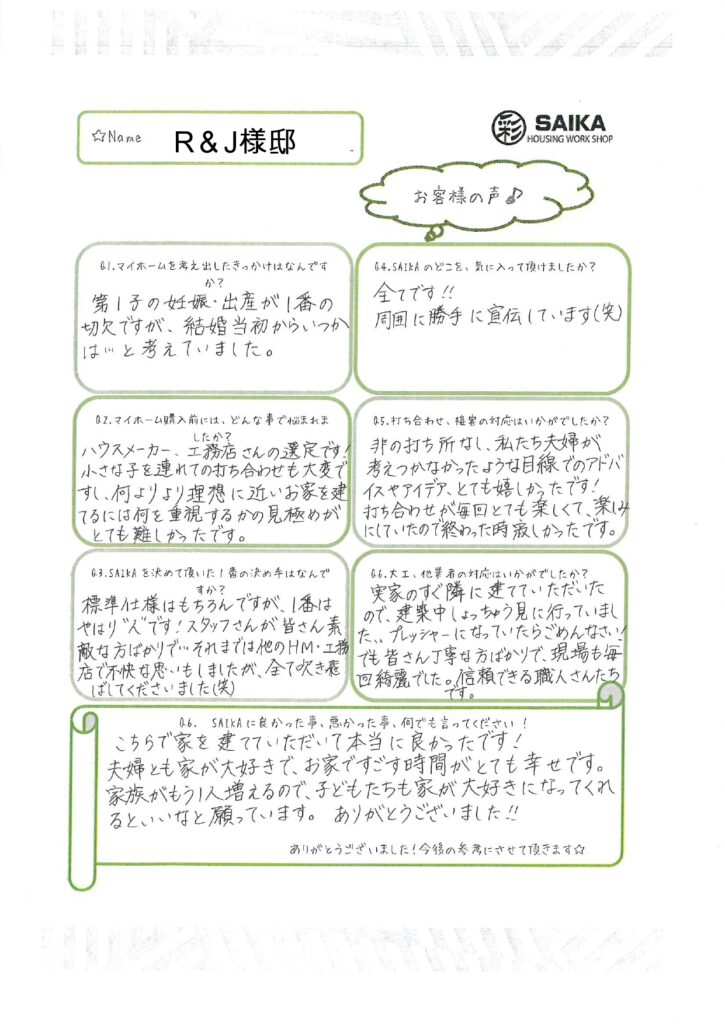 ☆Name R＆J様邸
彩 SAIKA
HOUSING WORK SHOP
お客様の声♪
Q1.マイホームを考え出したきっかけはなんです
か？
第1子の妊娠・出産が1番の
切欠ですが、結婚当初からいつか
は…と考えていました。
Q4.SAIKAのどこを、気に入って頂けましたか？
全てです!!
周囲に勝手に宣伝しています(笑)
Q2.マイホーム購入前には、どんな事で悩まれま
したか？
ハウスメーカー、工務店さんの選定です!
小さな子を連れての打ち合わせも大変で
すし、何よりより理想に近いお家を建
てるには何を重視するかの見極めが
とても難しかったです。
Q5.打ち合わせ、接客の対応はいかがでしたか？
非の打ち所なし、私たち夫婦が
考えつかなかったような目線でのアドバ
イスやアイデア、とても嬉しかったです!
打ち合わせが毎回とても楽しくて、楽しみ
にしていたので終わった時寂しかったです。
Q3.SAIKAを決めて頂いた1番の決め手はなんで
すか？
標準仕様はもちろんですが、1番は
やはり"人"です!スタッフさんが皆さん素
敵な方ばかりで…それまでは他のHM・工務
店で不快な思いもしましたが、全て吹き飛
ばしてくださいました(笑)
Q6.大工、他業者の対応はいかがでしたか？
実家のすぐ隣に建てていただいた
ので、建築中しょっちゅう見に行っていまし
た、、プレッシャーになっていたらごめんなさい!
でも皆さん丁寧な方ばかりで、現場も毎
回綺麗でした。信頼できる職人さんたち
です。
Q6. SAIKAに良かった事、悪かった事、何でも言ってください！
こちらで家を建てていただいて本当に良かったです!
夫婦とも家が大好きで、お家ですごす時間がとても幸せです。
家族がもう1人増えるので、子どもたちも家が大好きになってくれ
るといいなと願っています。 ありがとうございました!!
ありがとうございました！今後の参考にさせて頂きます☆